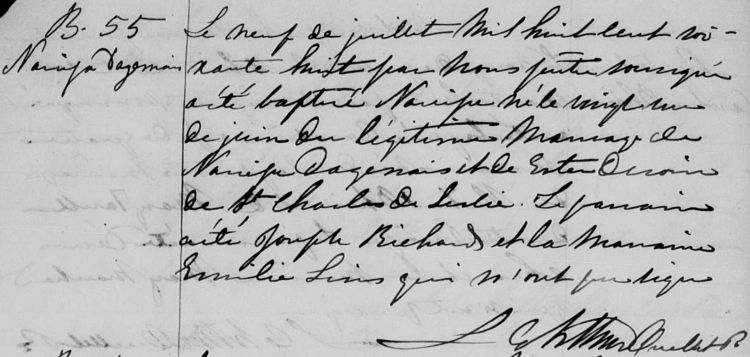 B. 55
Narcisse Dagenais
Le neuf de juillet mil huit cent soi-
xante huit par nous prêtre soussigné
a été baptisé Narcisse né le vingt un
de juin du légitime mariage de
Narcisse Dagenais et de Ester
de St Charles de Leslie. Le parrain
a été Joseph Richard et la marraine
Emilie qui n'ont pu signer
Ouellet